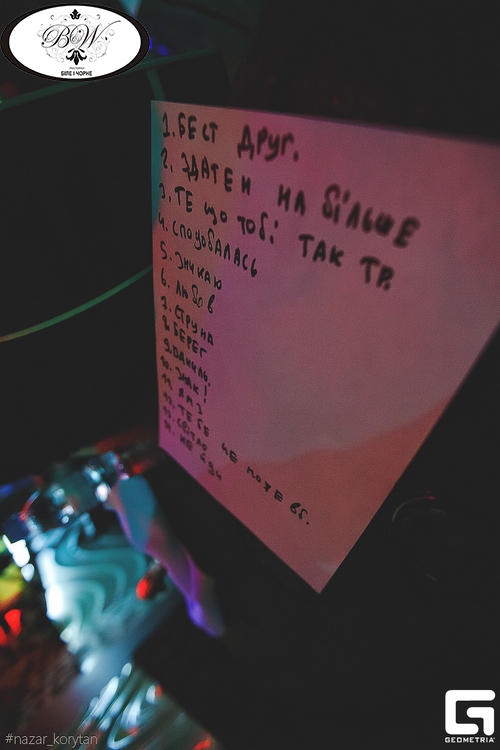 B&W
РЕСТОРАН
БІЛЕ І ЧОРНЕ
1. БЕСТ ДРУГ.
2. ЗДАТЕН НА БІЛЬШЕ
3. ТЕ ЩО ТОБІ ТАК ТР.
4. СПОДОБАЛАСЬ
5. ЗНИКАЮ
6. ЛЮБОВ
7. СТРУНА
8. БЕРЕГ
9.
10. ЗНАК
11.
12. ТЕБЕ НЕ МОЖЕ
13. СВІТЛО
14. НЕ
#nazar_korytan
GEOMETRIA